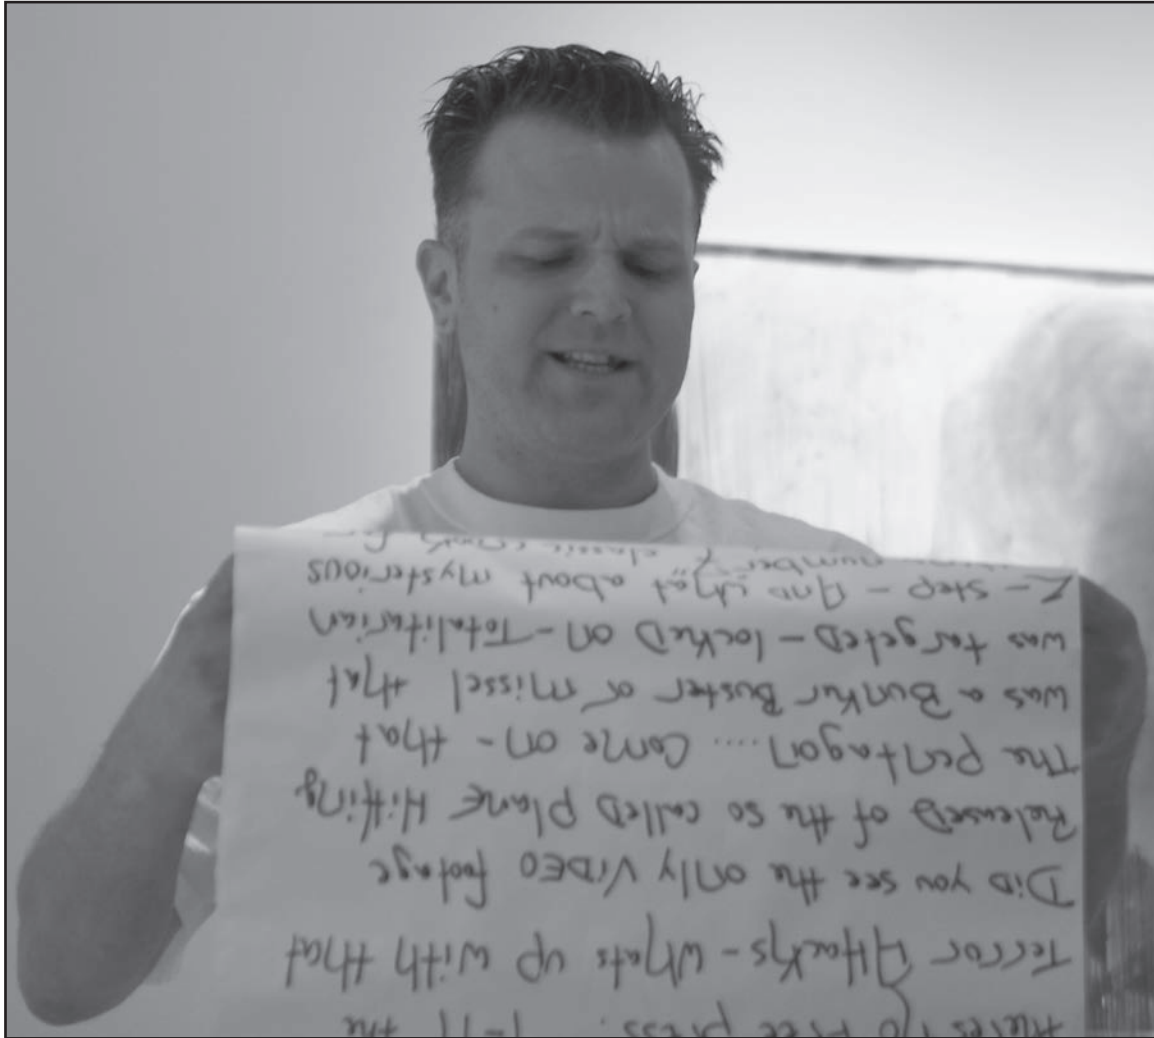 theres no free press. 9-11 the
Terror Attacks - whats up with that
DiD you see the only ViDEO footage
ReleaseD of the so calleD planE Hitting
The pentagon .... Come on - that
was a Bunker Buster or missel that
was targeteD - lockeD on - Totalitarian
2 - step - AnD what about mysterious
number 7 classic